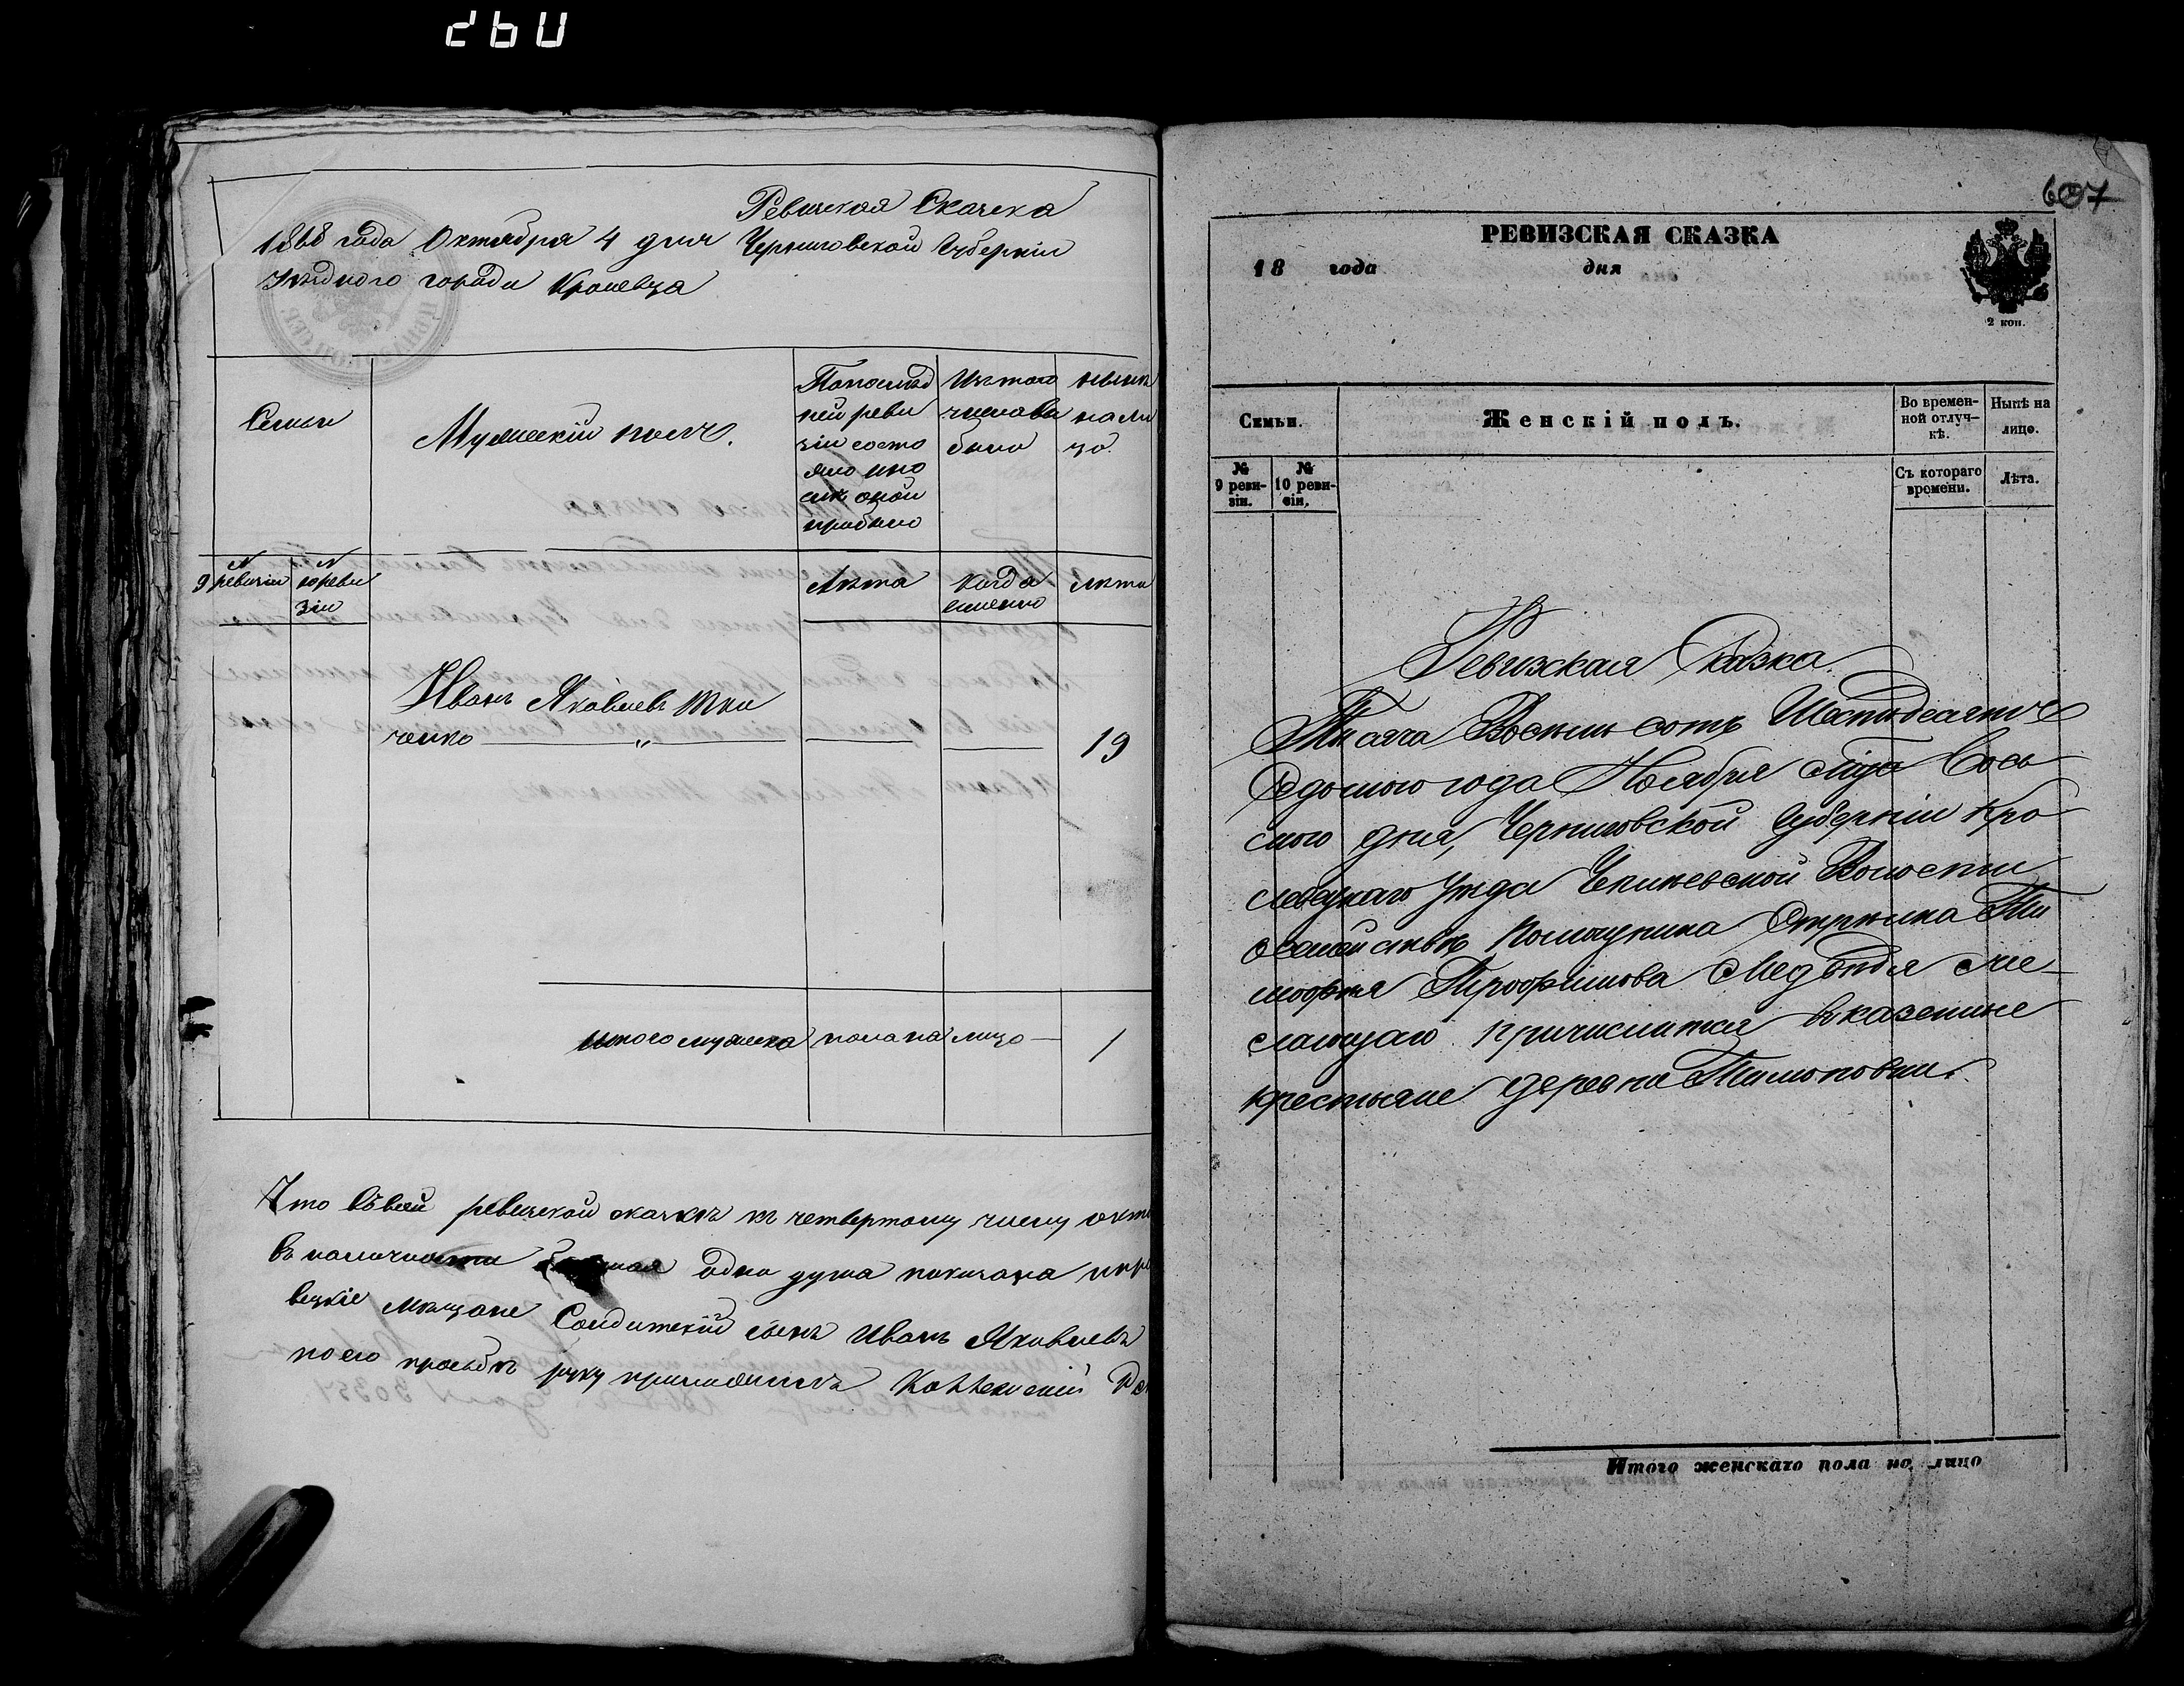 Ревизская Сказка
1868 года Октября 4 дня Черниговской Губерніи
уѣзднаго города Кролевца
Семьи
Мужескій полъ.
По послѣд
ней реви
зіи состо
яло и по
слѣ оной
прибыло
Изъ того
числа вы
было
нынѣ
на ли
цо.
N
9 ревизіи
N
10 реви
зіи
Лѣта
когда
именно
Лѣта
Иванъ Яковлевъ Тка
ченко — „ —
19
Итого мужеска пола на лицо —
1
Что въ сей ревизской сказкѣ къ четвертому числу окт
въ наличности одна душа показана
вецкіе мѣщане Солдатскій сынъ Иванъ Яковлевъ
по его просьбѣ руку приложилъ Коллежскій
607
РЕВИЗСКАЯ СКАЗКА
18 года дня
2 коп.
Семьи.
Женскій полъ.
Во времен-
ной отлуч-
кѣ.
Нынѣ на
лицо.
№
9 реви-
зіи.
№
10 реви-
зіи.
Съ котораго
времени.
Лѣта.
Ревизская Сказка
Тысяча Восемь сотъ Шестьдесятъ
Седьмого года Ноября мца Вось
мого дня, Черниговской Губерніи Кро
левецкаго Уѣзда Чепліевской Волости
о семействѣ Помощника Стрѣлка Ти
мофѣя Трофимова Медвѣдя же
лающаго причислится въ казенные
крестьяне деревни Тимоновки.
Итого женскаго пола на лицо